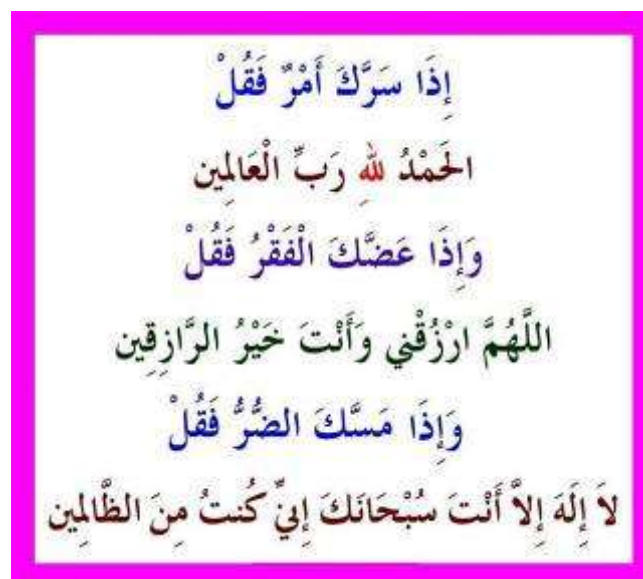 إِذَا سَرَّكَ أَمْرٌ فَقُلْ
الحَمْدُ للهِ رَبِّ الْعَالمِين
وَإِذَا عَضَّكَ الْفَقْرُ فَقُلْ
اللَّهُمَّ ارْزُقْني وَأَنْتَ خَيْرُ الرَّازِقِين
وَإِذَا مَسَّكَ الضُّرُّ فَقُلْ
لاَ إِلَهَ إِلاَّ أَنْتَ سُبْحَانَكَ إِنيِّ كُنتُ مِنَ الظَّالمِين